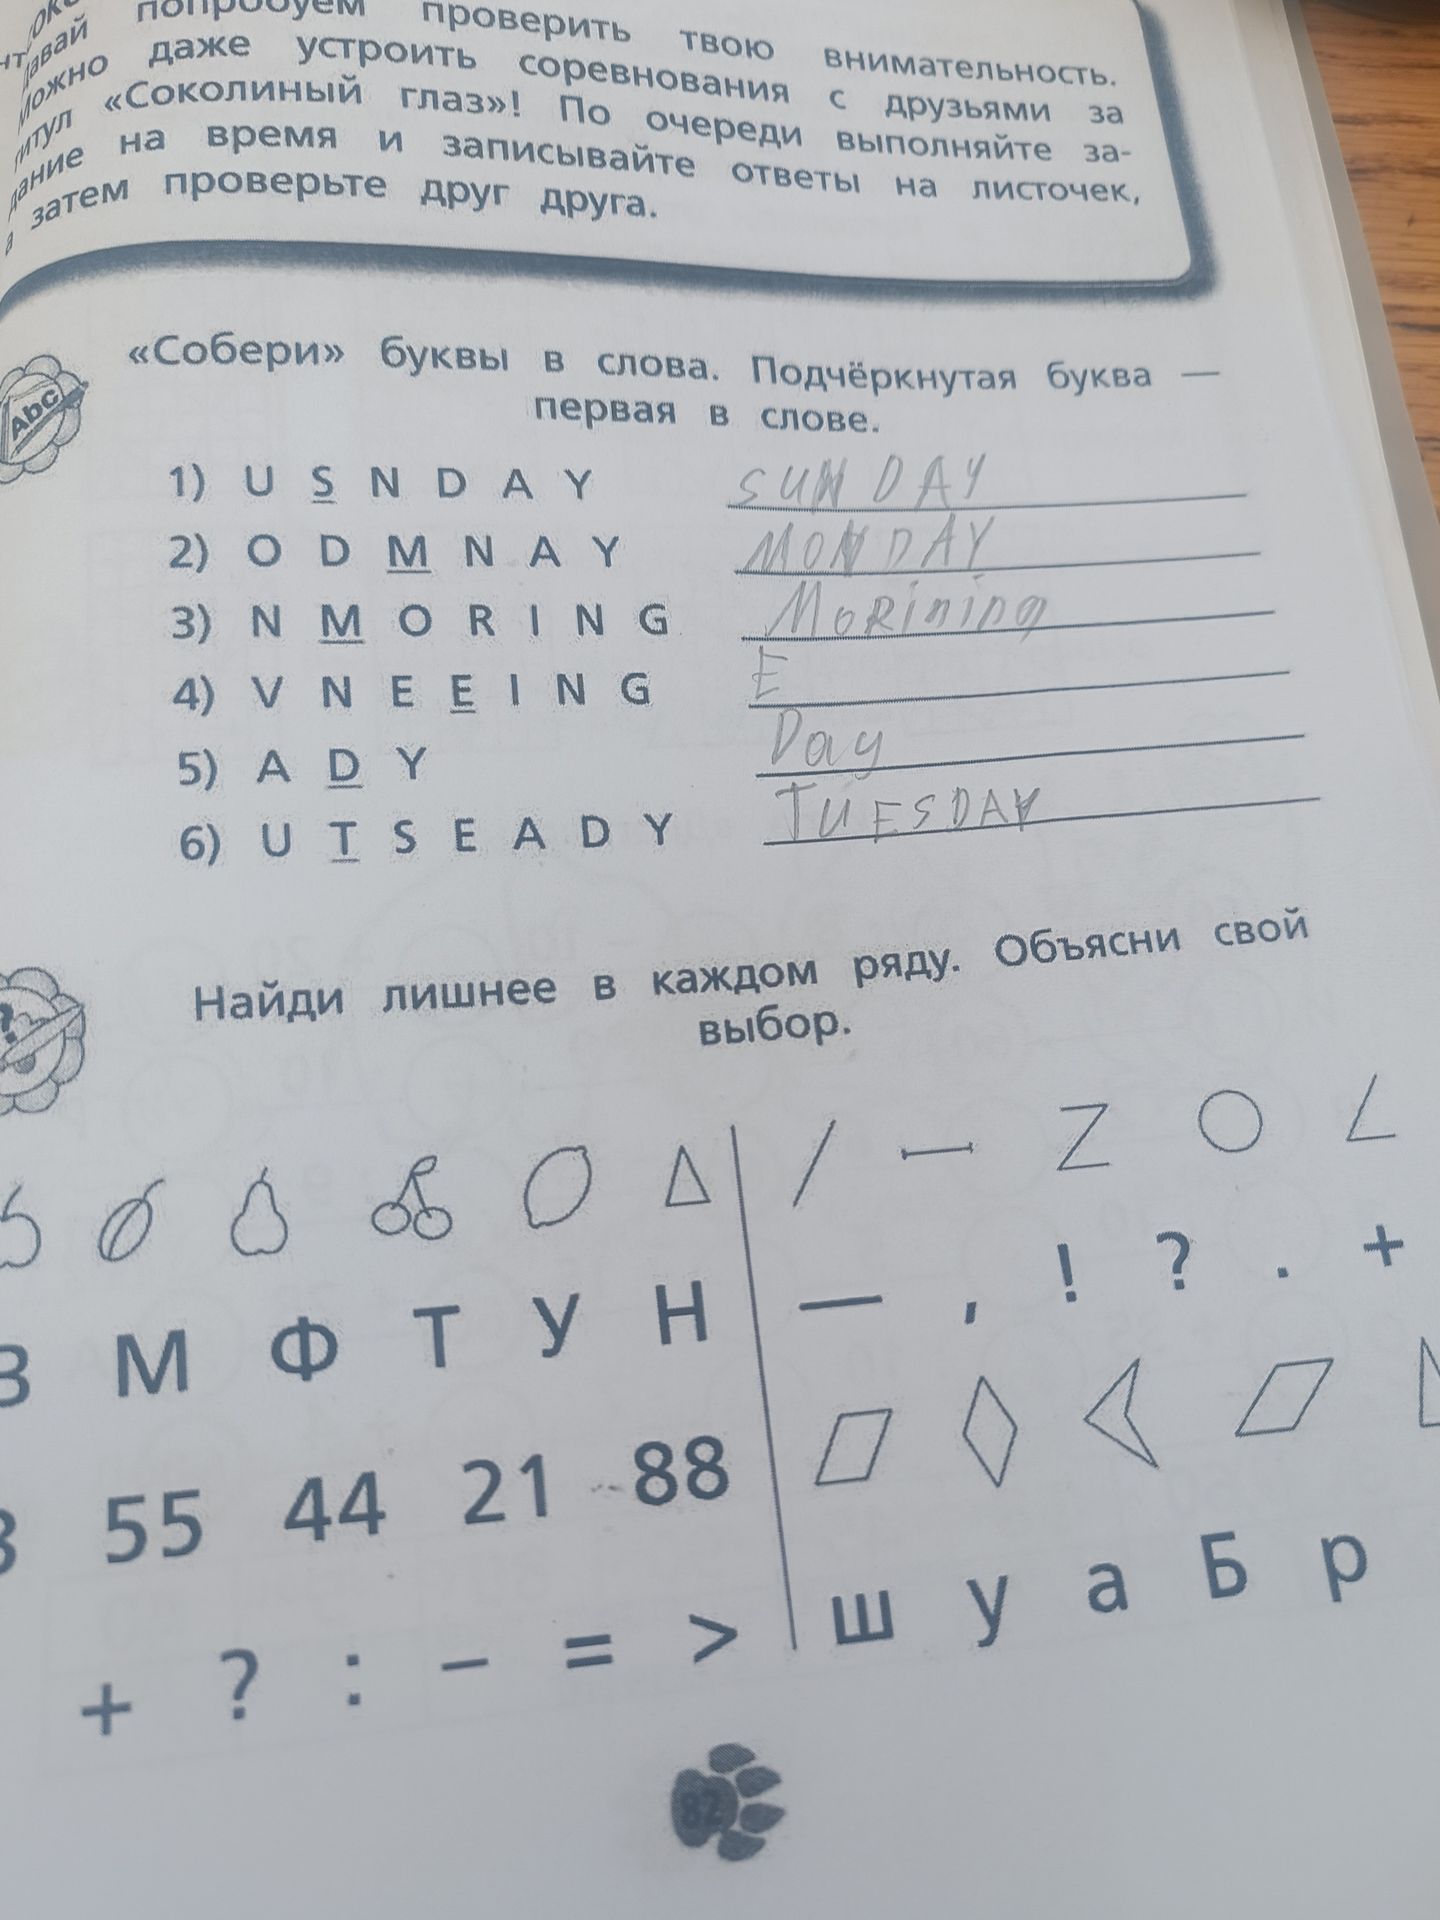 давай попробуем проверить твою внимательность.
Можно даже устроить соревнования с друзьями за
титул «Соколиный глаз»! По очереди выполняйте за-
дание на время и записывайте ответы на листочек,
а затем проверьте друг друга.
Abc
«Собери» буквы в слова. Подчёркнутая буква —
первая в слове.
1) U S N D A Y SUNDAY
2) O D M N A Y MONDAY
3) N M O R I N G MoRining
4) V N E E I N G E
5) A D Y Day
6) U T S E A D Y TUESDAY
?
Найди лишнее в каждом ряду. Объясни свой
выбор.
В М Ф Т У Н — , ! ? . +
55 44 21 88
+ ? : – = > ш у а Б р
82